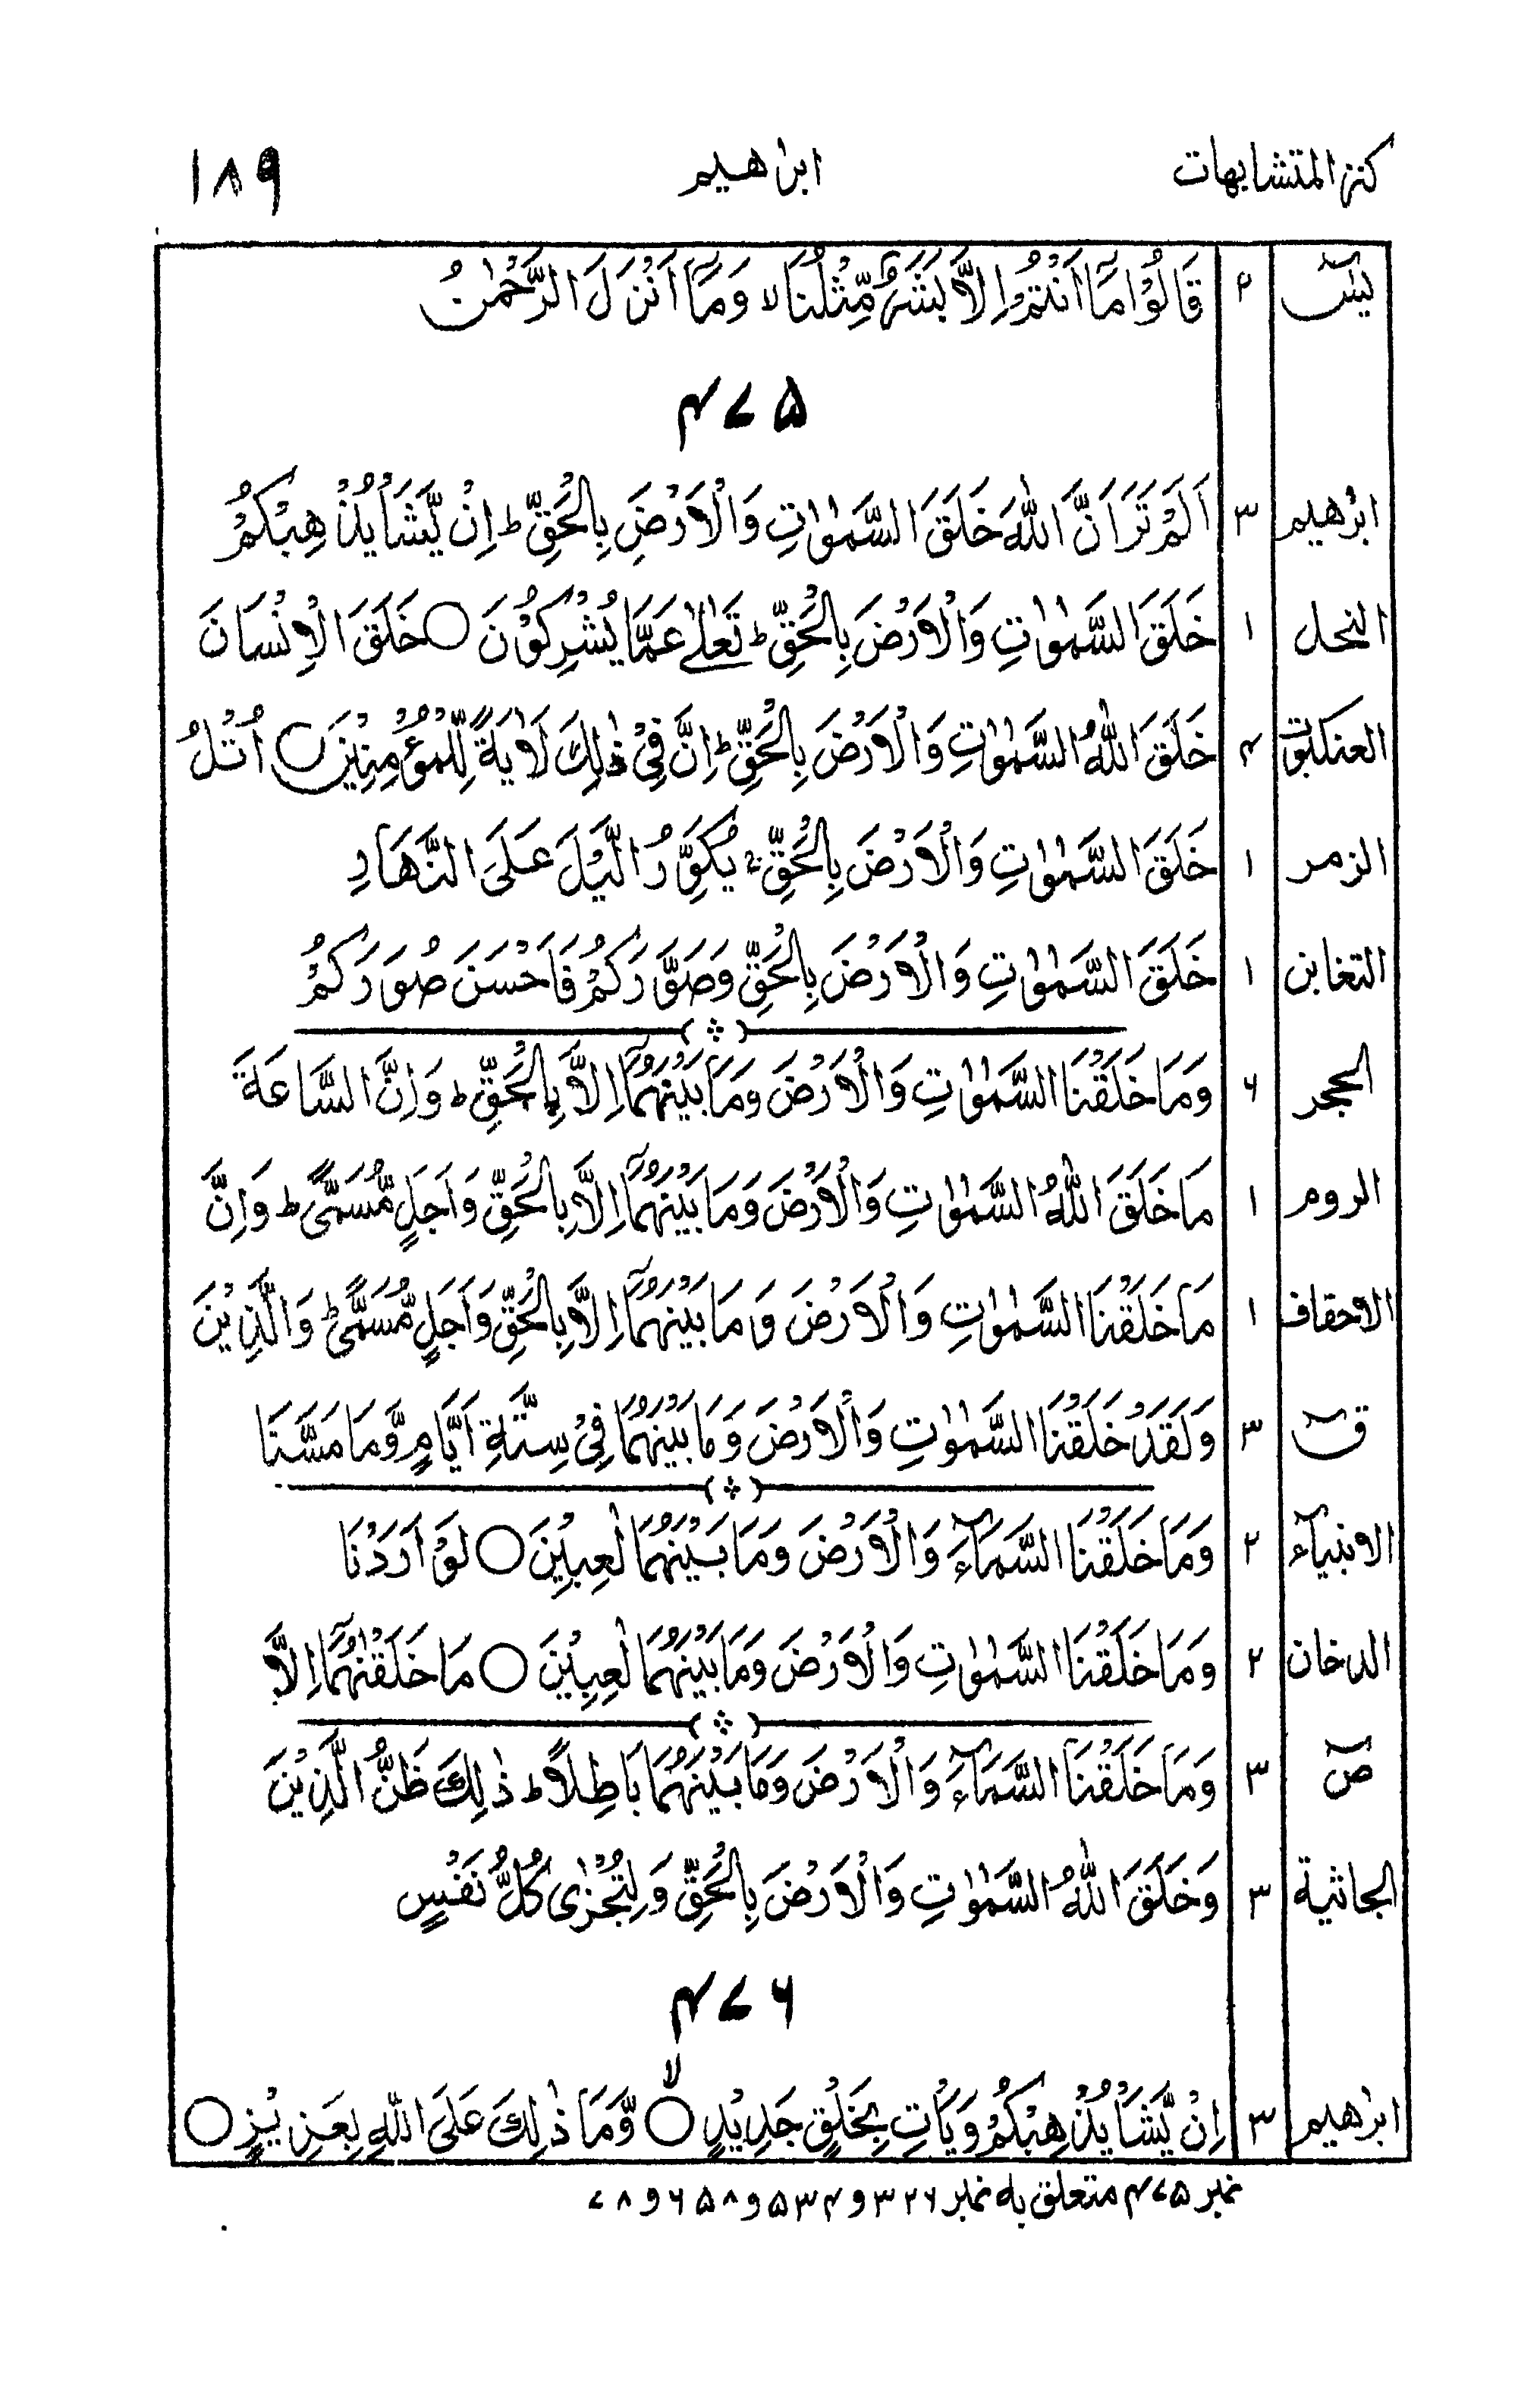 كنز المتشابهات ابرٰهيم ١٨٩
يٰسٓ ٢ قَالُوْا مَآ اَنْتُمْ اِلَّا بَشَرٌ مِّثْلُنَا لا وَمَآ اَنْزَلَ الرَّحْمٰنُ
۴۷۵
ابرٰهيم ٣ اَلَمْ تَرَ اَنَّ اللّٰهَ خَلَقَ السَّمٰوٰتِ وَالْاَرْضَ بِالْحَقِّ ط اِنْ يَّشَاْ يُذْهِبْكُمْ
النحل ١ خَلَقَ السَّمٰوٰتِ وَالْاَرْضَ بِالْحَقِّ ط تَعٰلٰى عَمَّا يُشْرِكُوْنَ ○ خَلَقَ الْاِنْسَانَ
العنكبوت ۴ خَلَقَ اللّٰهُ السَّمٰوٰتِ وَالْاَرْضَ بِالْحَقِّ ط اِنَّ فِيْ ذٰلِكَ لَاٰيَةً لِّلْمُؤْمِنِيْنَ ○ اُتْلُ
الزمر ١ خَلَقَ السَّمٰوٰتِ وَالْاَرْضَ بِالْحَقِّ ج يُكَوِّرُ الَّيْلَ عَلَى النَّهَارِ
التغابن ١ خَلَقَ السَّمٰوٰتِ وَالْاَرْضَ بِالْحَقِّ وَصَوَّرَكُمْ فَاَحْسَنَ صُوَرَكُمْ
الحجر ۶ وَمَا خَلَقْنَا السَّمٰوٰتِ وَالْاَرْضَ وَمَا بَيْنَهُمَآ اِلَّا بِالْحَقِّ ط وَاِنَّ السَّاعَةَ
الروم ١ مَا خَلَقَ اللّٰهُ السَّمٰوٰتِ وَالْاَرْضَ وَمَا بَيْنَهُمَآ اِلَّا بِالْحَقِّ وَاَجَلٍ مُّسَمًّى ط وَاِنَّ
الاحقاف ١ مَا خَلَقْنَا السَّمٰوٰتِ وَالْاَرْضَ وَمَا بَيْنَهُمَآ اِلَّا بِالْحَقِّ وَاَجَلٍ مُّسَمًّى ط وَالَّذِيْنَ
قٓ ٣ وَلَقَدْ خَلَقْنَا السَّمٰوٰتِ وَالْاَرْضَ وَمَا بَيْنَهُمَا فِيْ سِتَّةِ اَيَّامٍ وَّمَا مَسَّنَا
الانبيآء ٢ وَمَا خَلَقْنَا السَّمَآءَ وَالْاَرْضَ وَمَا بَيْنَهُمَا لٰعِبِيْنَ ○ لَوْ اَرَدْنَا
الدخان ٢ وَمَا خَلَقْنَا السَّمٰوٰتِ وَالْاَرْضَ وَمَا بَيْنَهُمَا لٰعِبِيْنَ ○ مَا خَلَقْنٰهُمَآ اِلَّا
صٓ ٣ وَمَا خَلَقْنَا السَّمَآءَ وَالْاَرْضَ وَمَا بَيْنَهُمَا بَاطِلًا ط ذٰلِكَ ظَنُّ الَّذِيْنَ
الجاثية ٣ وَخَلَقَ اللّٰهُ السَّمٰوٰتِ وَالْاَرْضَ بِالْحَقِّ وَلِتُجْزٰى كُلُّ نَفْسٍ
۴۷۶
ابرٰهيم ٣ اِنْ يَّشَاْ يُذْهِبْكُمْ وَيَاْتِ بِخَلْقٍ جَدِيْدٍ ○ لا وَّمَا ذٰلِكَ عَلَى اللّٰهِ بِعَزِيْزٍ ○
نمبر ۴۷۵ متعلق به نمبر ۳۲۶ و ۵۳۴ و ۶۵۸ و ۷۸